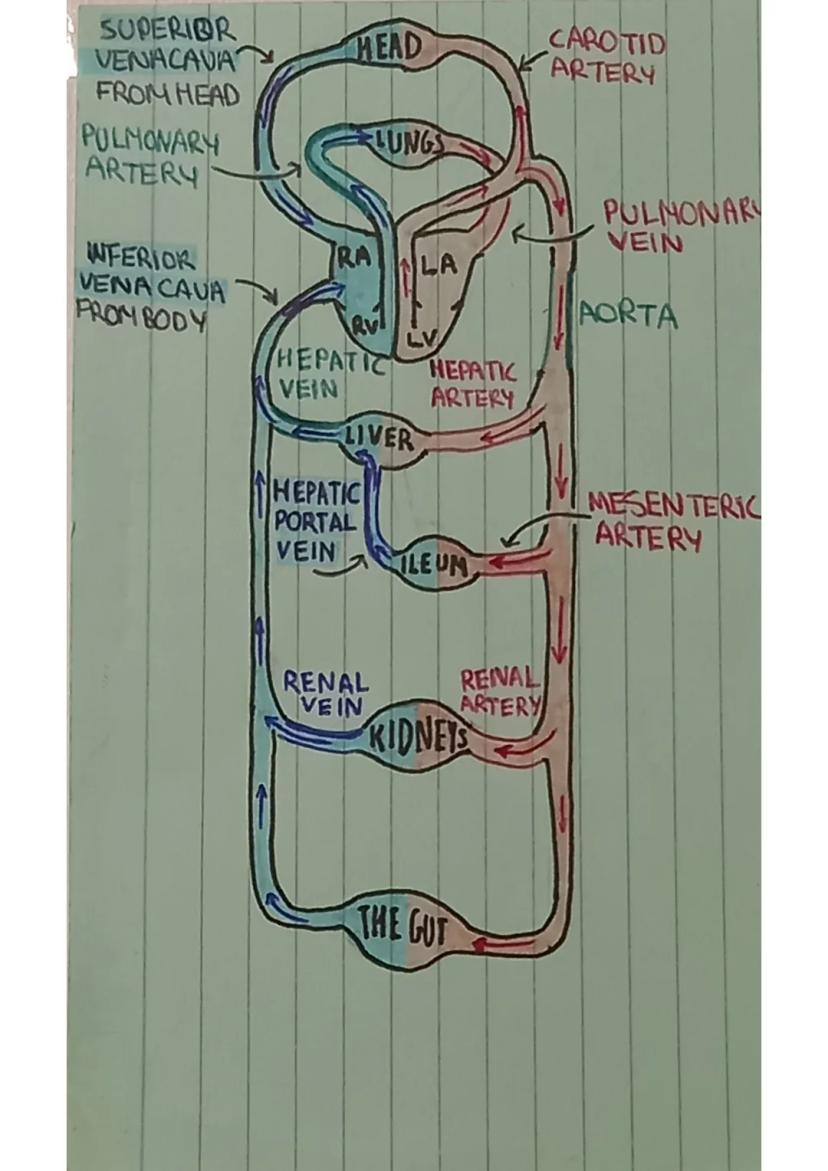 SUPERIOR
VENACAVA
FROM HEAD
HEAD
CAROTID
ARTERY
PULMONARY
ARTERY
LUNGS
PULMONARY
VEIN
INFERIOR
VENA CAVA
FROM BODY
RA
LA
RV
LV
AORTA
HEPATIC
VEIN
HEPATIC
ARTERY
LIVER
HEPATIC
PORTAL
VEIN
MESENTERIC
ARTERY
ILEUM
RENAL
VEIN
RENAL
ARTERY
KIDNEYS
THE GUT